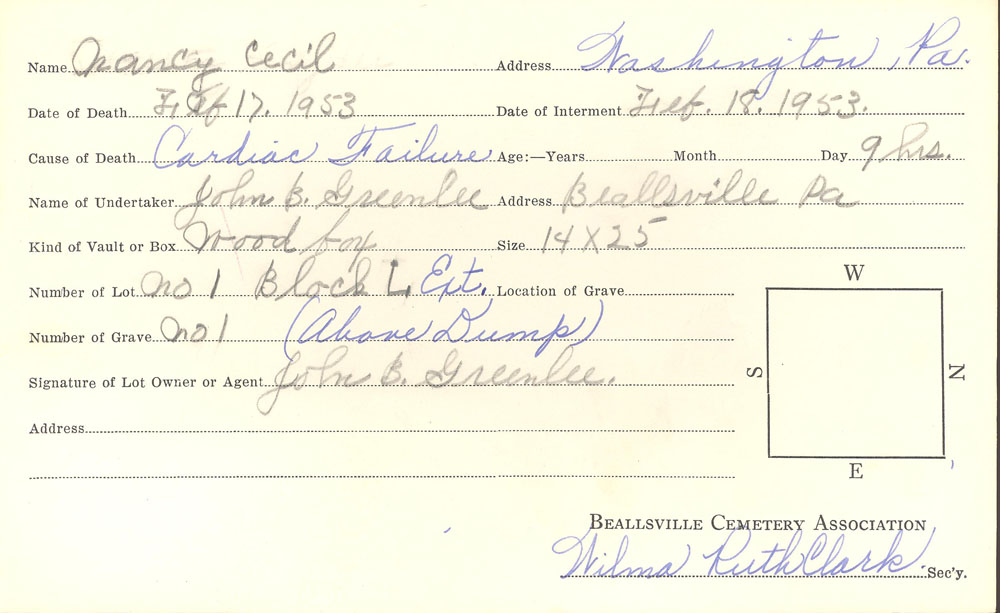 Name Nancy Cecil Address Washington, Pa.
Date of Death Feb 17. 1953 Date of Interment Feb. 18. 1953.
Cause of Death Cardiac Failure Age:—Years Month Day 9 hrs.
Name of Undertaker John B. Greenlee Address Beallsville Pa
Kind of Vault or Box Wood box Size 14 X 25
Number of Lot No 1 Block L, Ext. Location of Grave
W
Number of Grave No 1 (Above Dump)
S N
Signature of Lot Owner or Agent John B. Greenlee.
Address
E
BEALLSVILLE CEMETERY ASSOCIATION
Wilma Ruth Clark Sec'y.